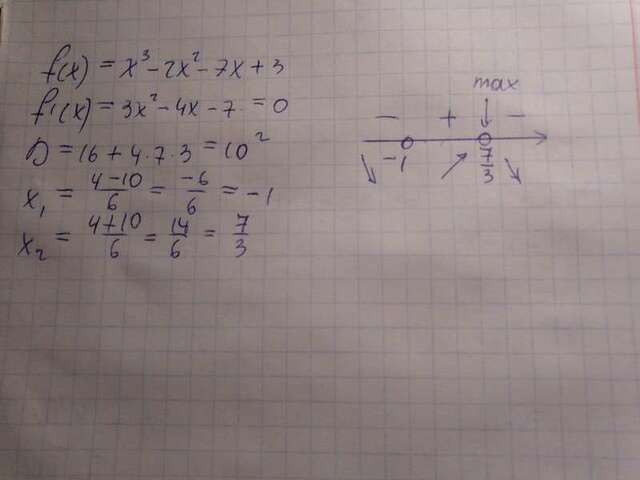 f(x) = x³ - 2x² - 7x + 3
f'(x) = 3x² - 4x - 7 = 0
D = 16 + 4·7·3 = 10²
x₁ = (4-10)/6 = -6/6 = -1
x₂ = (4+10)/6 = 14/6 = 7/3
max
- + -
-1 7/3